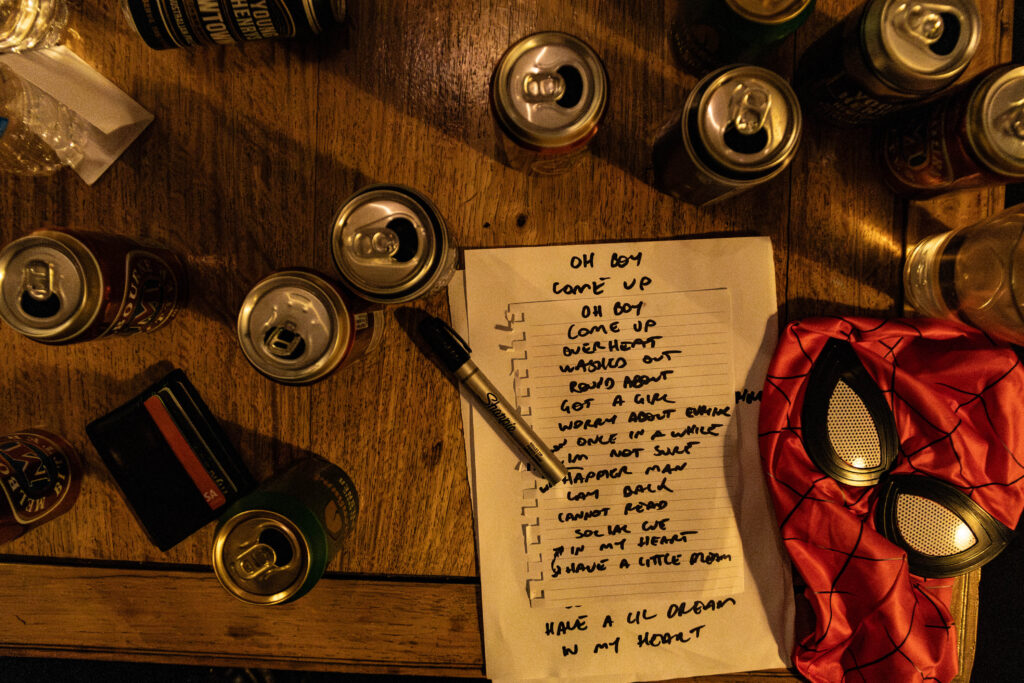 YOUNG
HENRY
NEWTOWN
OH BOY
COME UP
OH BOY
COME UP
OVERHEAT
WASHED OUT
ROUND ABOUT
GOT A GIRL
WORRY ABOUT
ONCE IN A WHILE
IM NOT SURE
HAPPIER MAN
LAY BACK
CANNOT READ
SOCIAL CUE
IN MY HEART
HAVE A LITTLE DREAM
HAVE A LIL DREAM
IN MY HEART
Sharpie
MELBO